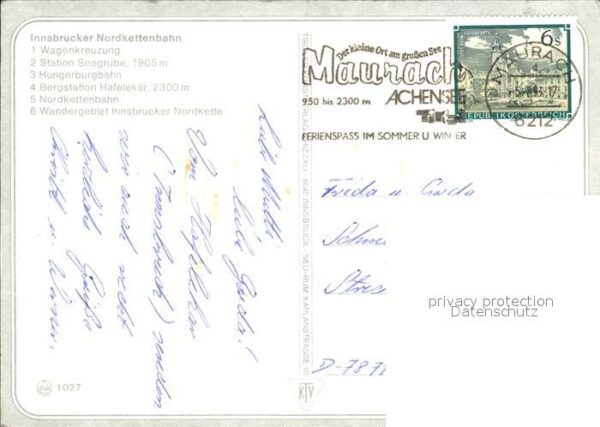 Innsbrucker Nordkettenbahn
1 Wagenkreuzung
2 Station Seegrube, 1905 m
3 Hungerburgbahn
4 Bergstation Hafelekar, 2300 m
5 Nordkettenbahn
6 Wandergebiet Innsbrucker Nordkette
Der kleine Ort am großen See
Maurach
ACHENSEE
950 bis 2300 m
FERIENSPASS IM SOMMER U WINTER
6 S
REPUBLIK ÖSTERREICH
MAURACH
6212
Liebe Mutti
liebe Gerda!
Vom Hafelekar
(Innsbruck) senden
wir euch recht
herzliche Grüße
u.
Frieda u. Gerda
D-787
privacy protection
Datenschutz
INNSBRUCK NEU-RUM KAPLANSTRASSE 10
KTV
1027